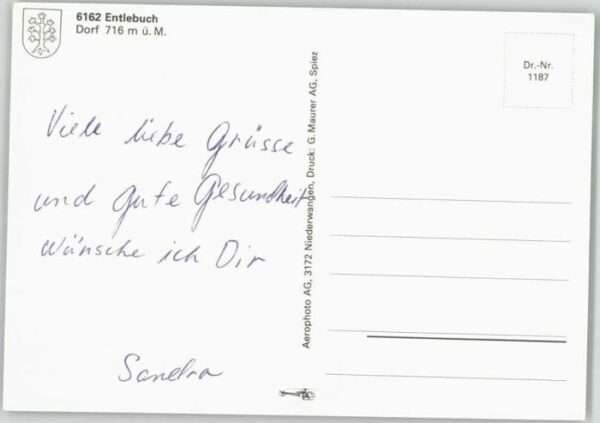 6162 Entlebuch
Dorf 716 m ü. M.
Viele liebe Grüsse
und gute Gesundheit
wünsche ich Dir
Sandra
Aerophoto AG, 3172 Niederwangen, Druck: G. Maurer AG, Spiez
Dr.-Nr.
1187